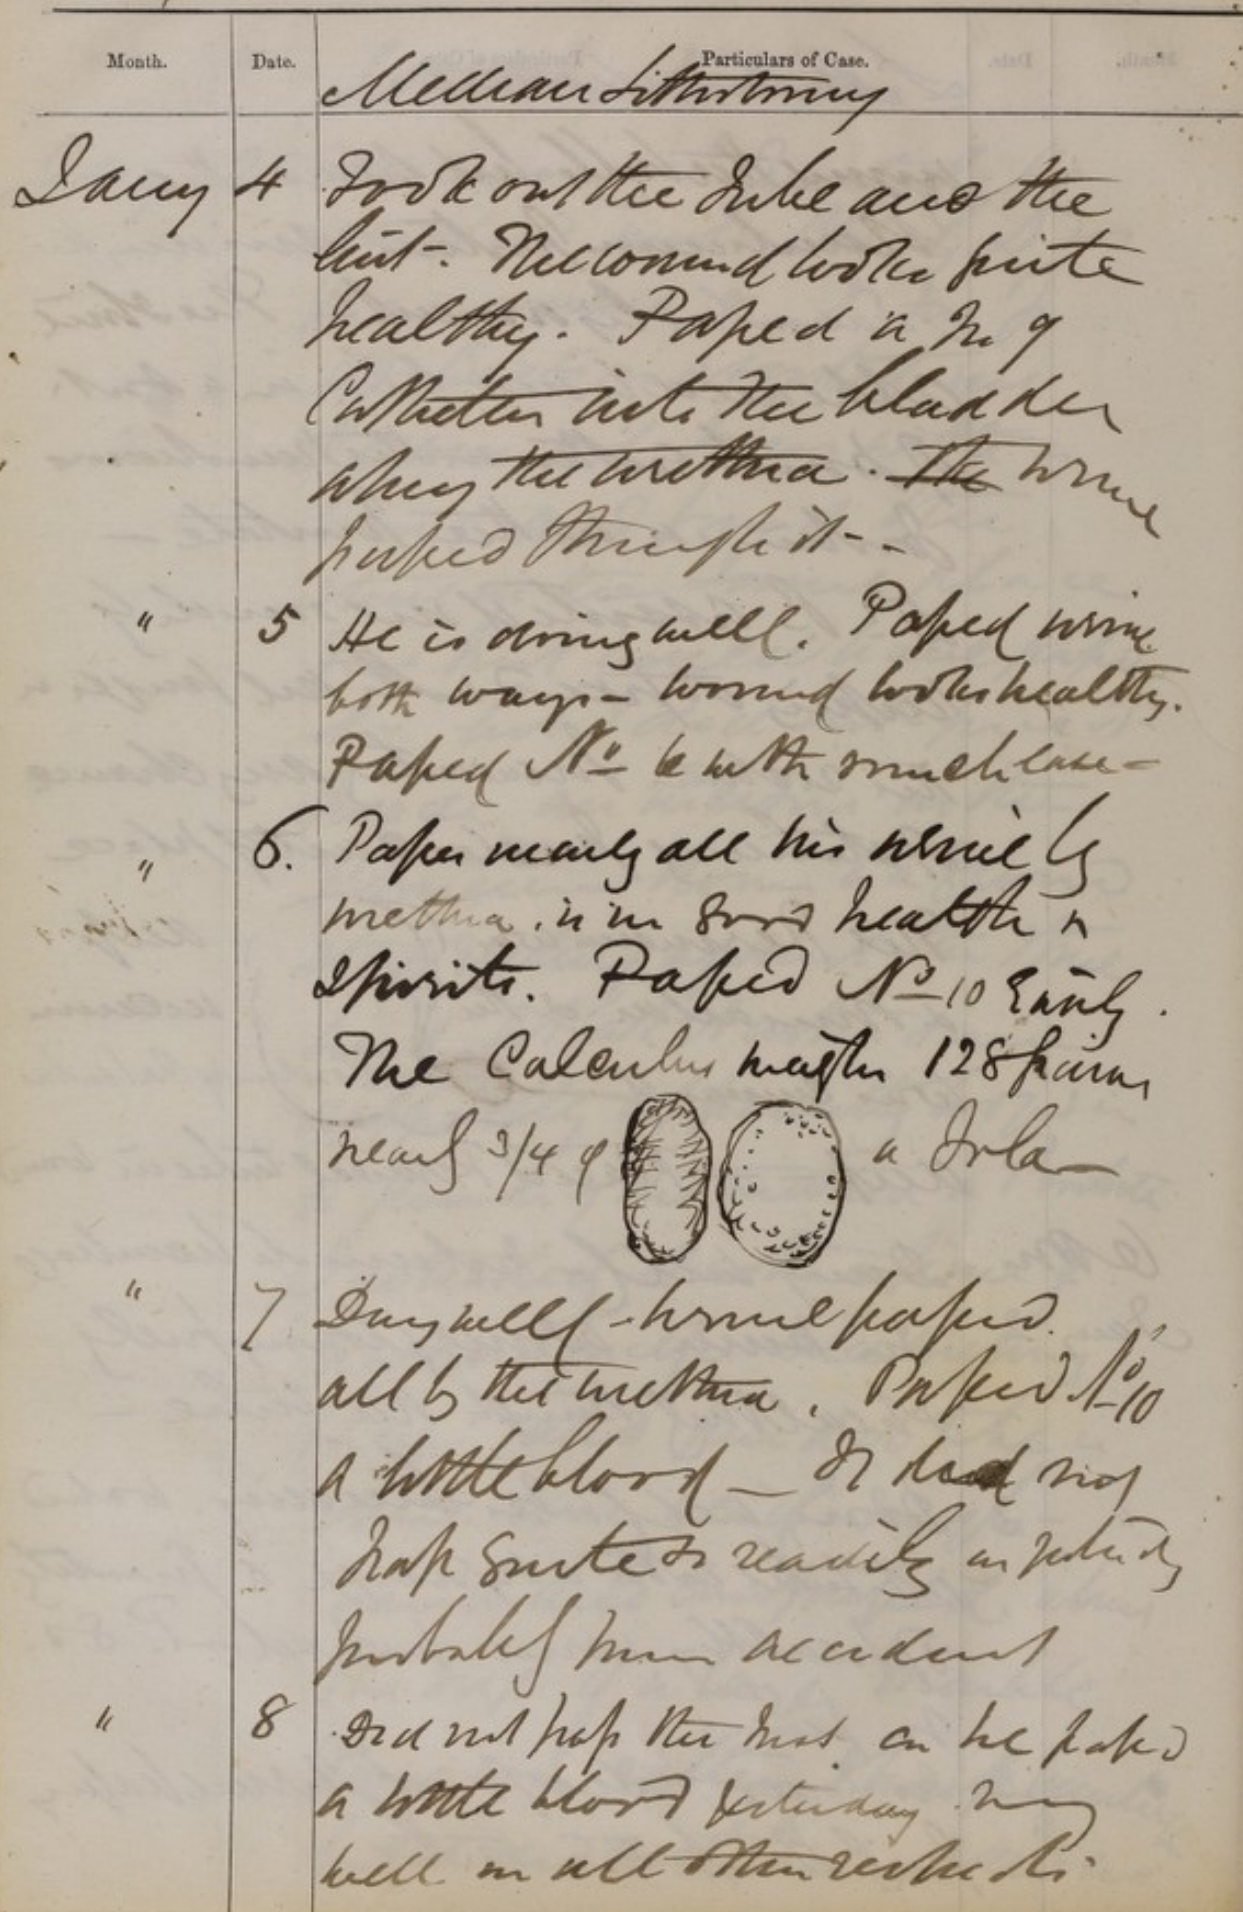 Month. Date. Particulars of Case.
Median Lithotomy
Jany 4 Took out the Tube and the
lint - The wound looks quite
healthy. Passed a No 9
Catheter into the bladder
along the urethra. The urine
passed through it - -
" 5 He is doing well. Passed urine
both ways - wound looks healthy.
Passed No 6 with much ease -
" 6. Passes nearly all his urine by
urethra. is in good health &
Spirits. Passed No 10 Easily.
The Calculus weighs 128 grains
nearly 3/4 of a Tola
" 7 Doing well - urine passed
all by the urethra. Passed No 10
a little blood - It did not
pass quite so readily as yesterday
probably from accident
" 8 Did not pass the Inst. as he passed
a little blood yesterday
well in all other respects